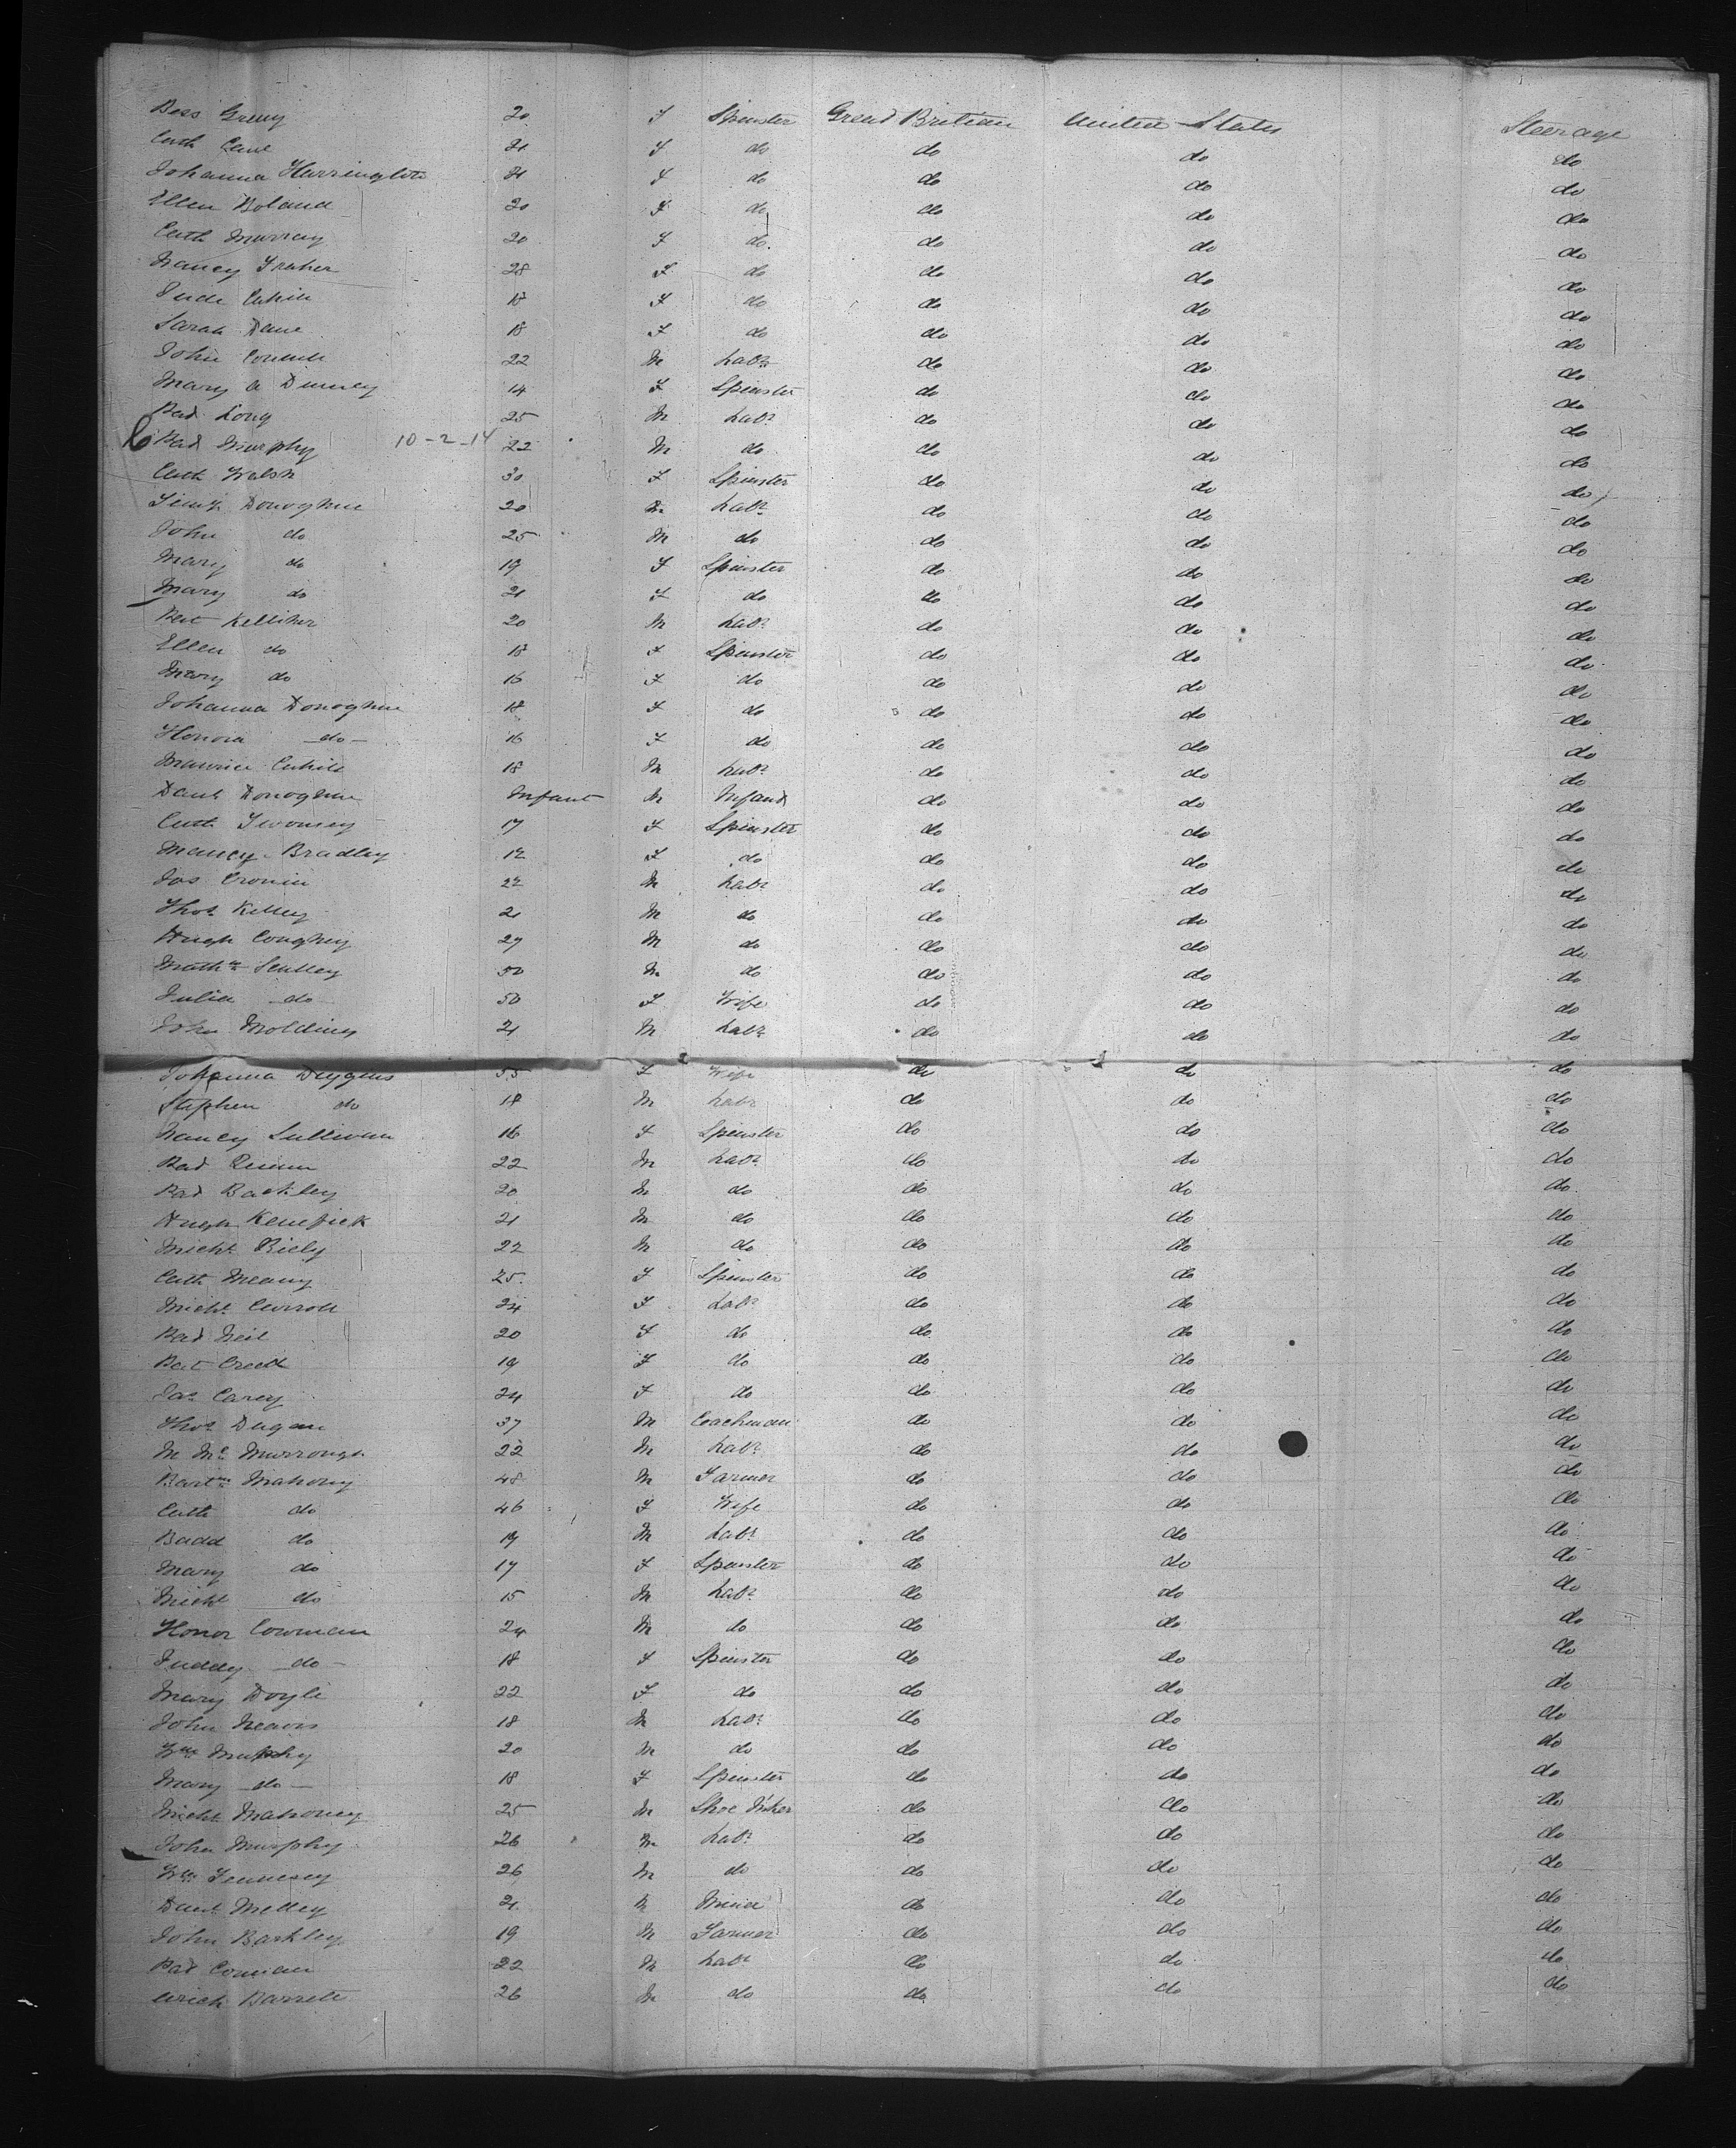 Bess 20 F Spinster Great Britian United States Steerage
Cath 21 F do do do do
Johanna Harrington 21 F do do do do
Ellen Boland 20 F do do do do
Cath Murray 20 F do do do do
Nancy 28 F do do do do
Cahill 18 F do do do do
Sarah 18 F do do do do
John Connell 22 M Labr do do do
Mary A 14 F Spinster do do do
Pad Long 25 M Labr do do do
Pad Murphy 10-2-14 22 M do do do do
Cath Walsh 30 F Spinster do do do
Donoghue 20 M Labr do do do
John do 25 M do do do do
Mary do 19 F Spinster do do do
Mary do 21 F do do do do
Bart Kelliher 20 M Labr do do do
Ellen do 18 F Spinster do do do
Mary do 16 F do do do do
Johanna Donoghue 18 F do do do do
Honora do 16 F do do do do
Maurice Cahill 18 M Labr do do do
Danl Donoghue Infant M Infant do do do
Cath Twomey 17 F Spinster do do do
Bradley 12 F do do do do
Jas Cronin 22 M Labr do do do
Thos Kelley 21 M do do do do
Hugh 27 M do do do do
Scalley 50 M do do do do
Julia do 50 F Wife do do do
John 21 M Labr do do do
Johanna 55 F Wife do do do
Stephen do 18 M Labr do do do
Nancy Sullivan 16 F Spinster do do do
Pad 22 M Labr do do do
Pad Backley 20 M do do do do
Hugh Kenefick 21 M do do do do
Michl Riely 22 M do do do do
Cath Meany 25 F Spinster do do do
Michl Carroll 24 F Labr do do do
Pad Neil 20 F do do do do
19 F do do do do
Jas Carey 24 F do do do do
Thos Dugan 37 M Coachman do do do
M Mc Murrough 22 M Labr do do do
Bartw Mahony 48 M Farmer do do do
Cath do 46 F Wife do do do
Padd do 19 M Labr do do do
Mary do 17 F Spinster do do do
Michl do 15 M Labr do do do
Honor 24 M do do do do
Juddy do 18 F Spinster do do do
Mary Doyle 22 F do do do do
John 18 M Labr do do do
Wm Murphy 20 M do do do do
Mary do 18 F Spinster do do do
Michl Mahoney 25 M Shoe Mker do do do
John Murphy 26 M Labr do do do
Wm 26 M do do do do
Danl 21 M do do do
John Barkley 19 M Farmer do do do
Pad 22 M Labr do do do
Barrett 26 M do do do do